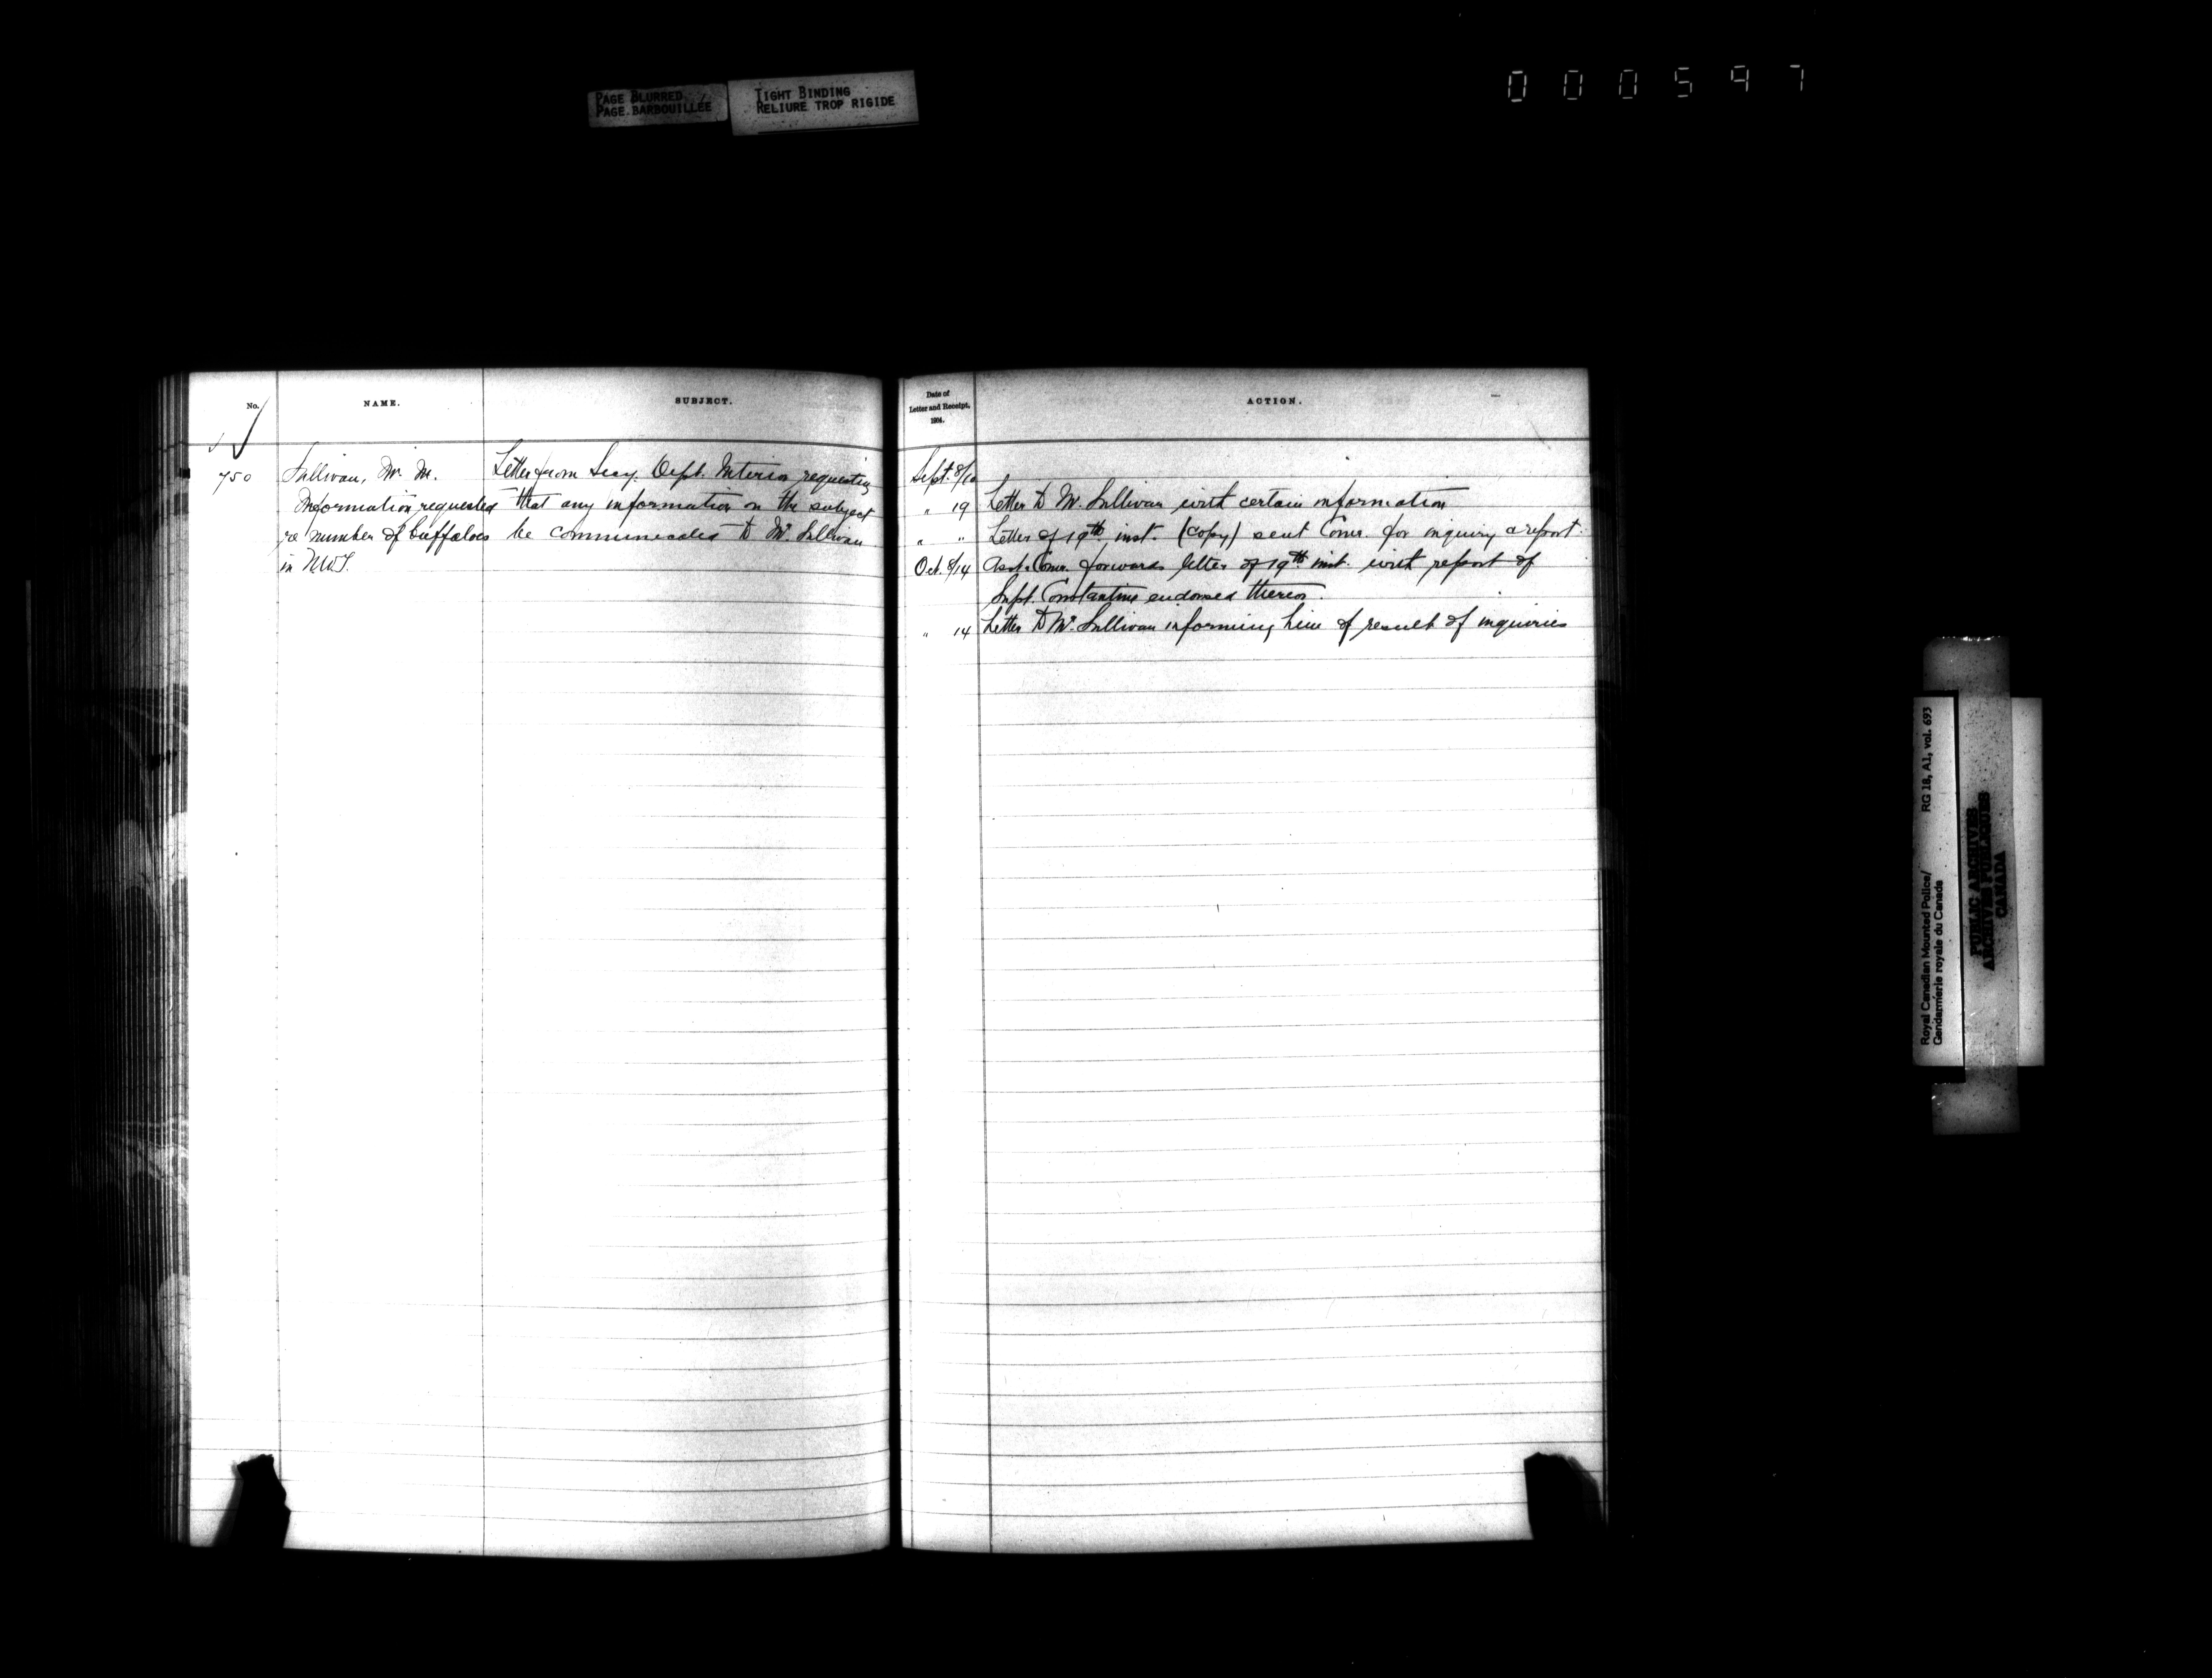 PAGE BLURRED
PAGE BARBOUILLÉE
TIGHT BINDING
RELIURE TROP RIGIDE
000597
No.
NAME.
SUBJECT.
Date of
Letter and Receipt,
1904.
ACTION.
750
Sullivan, Mr. M.
Information requested
re number of buffaloes
in N.W.T.
Letter from Secy. Dept. Interior requesting
that any information on the subject
be communicated to Mr. Sullivan
Sept. 8/10
" 19 Letter to Mr. Sullivan with certain information
" " Letter of 19th inst. (copy) sent Comr. for inquiry & report.
Oct. 8/14 Asst. Comr. forwards letter of 19th inst. with report of
Supt. Constantine endorsed thereon.
" 14 Letter to Mr. Sullivan informing him of result of inquiries
Royal Canadian Mounted Police/ RG 18, A1, vol. 693
Gendarmerie royale du Canada
PUBLIC ARCHIVES
ARCHIVES PUBLIQUES
CANADA